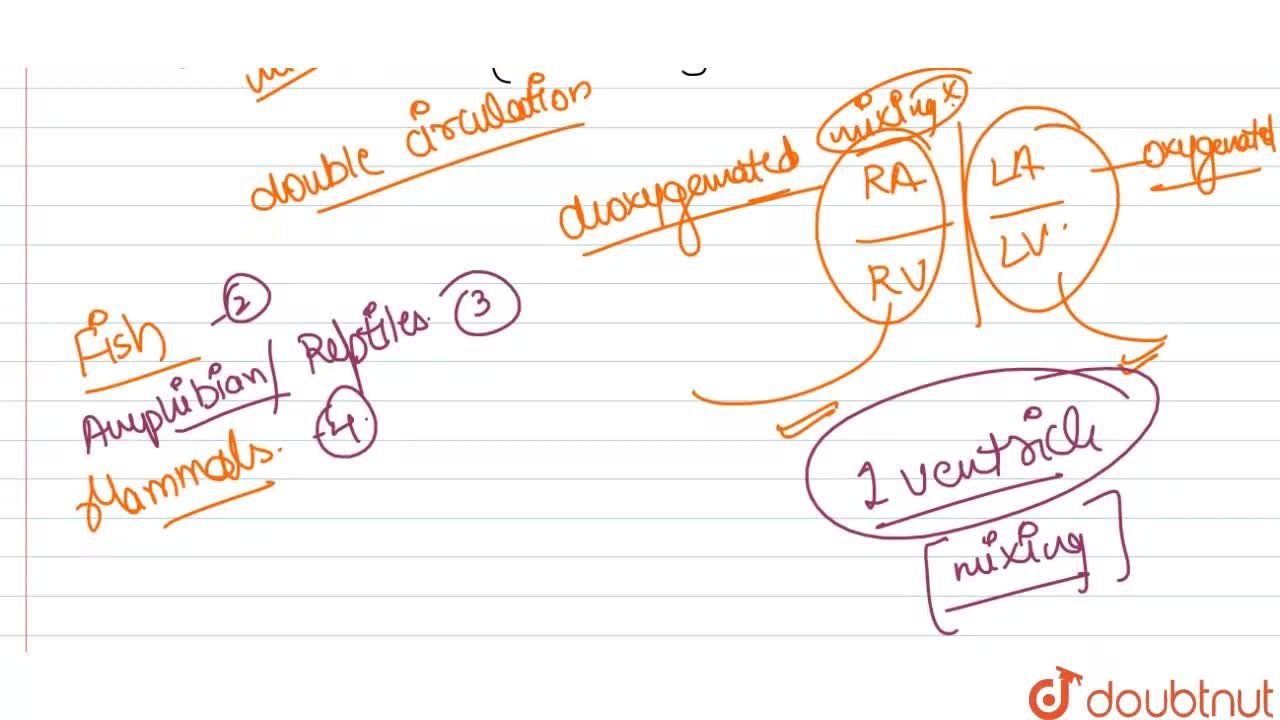 double circulation
mixing x
deoxygenated
RA
RV
LA
LV
oxygenated
Fish - 2
Amphibian / Reptiles. 3
Mammals. - 4.
1 ventricle
[mixing]
doubtnut